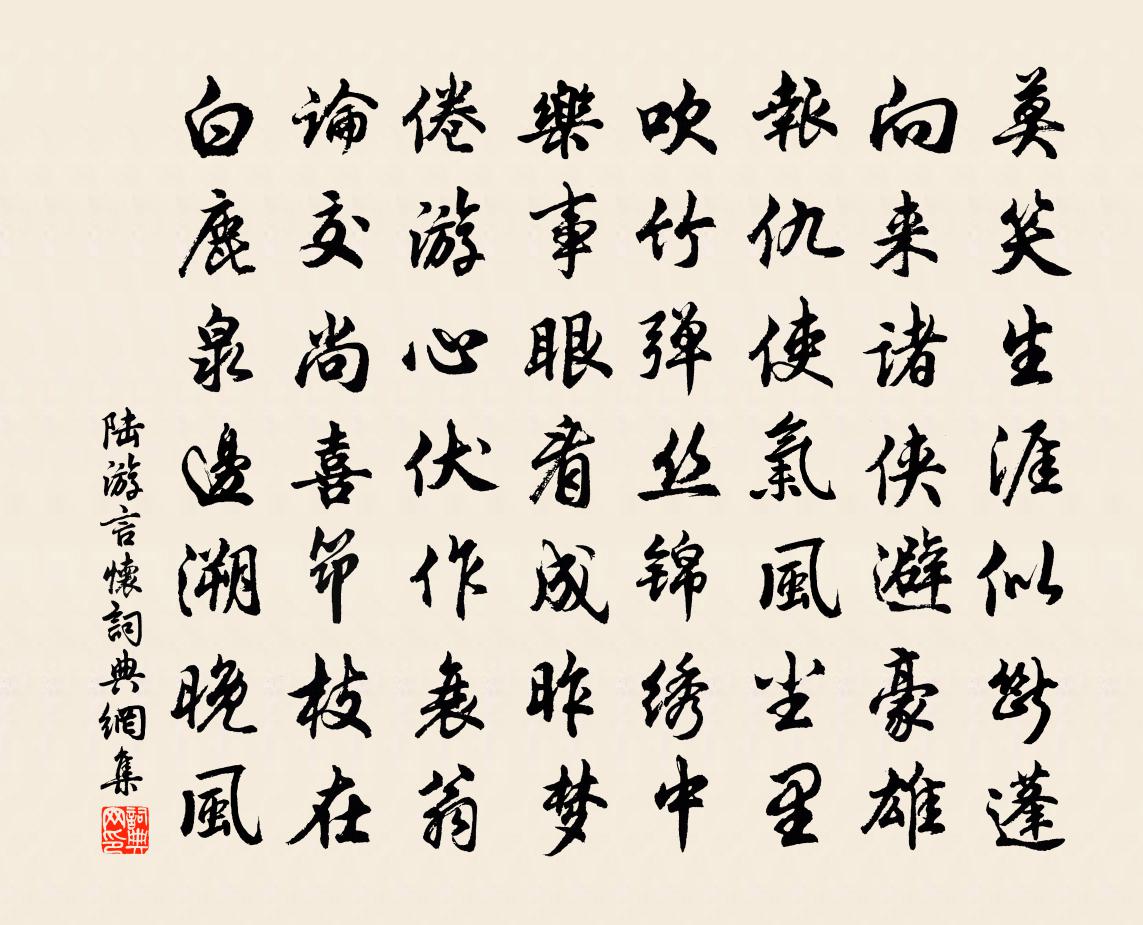 莫笑生涯似斷蓬
向来诸侠避豪雄
報仇使氣風尘里
吹竹弹丝锦绣中
樂事眼看成昨梦
倦游心伏作衰翁
論交尚喜筇枝在
白鹿泉邊溯晚風
陆游言懷詞典網集
詞典网印